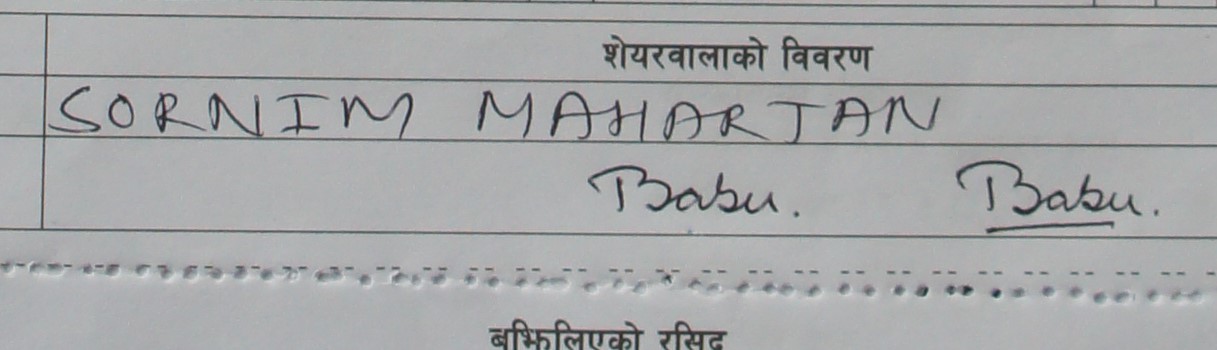 शेयरवालाको विवरण
SORNIM MAHARJAN
Babu. Babu.
बुझिलिएको रसिद